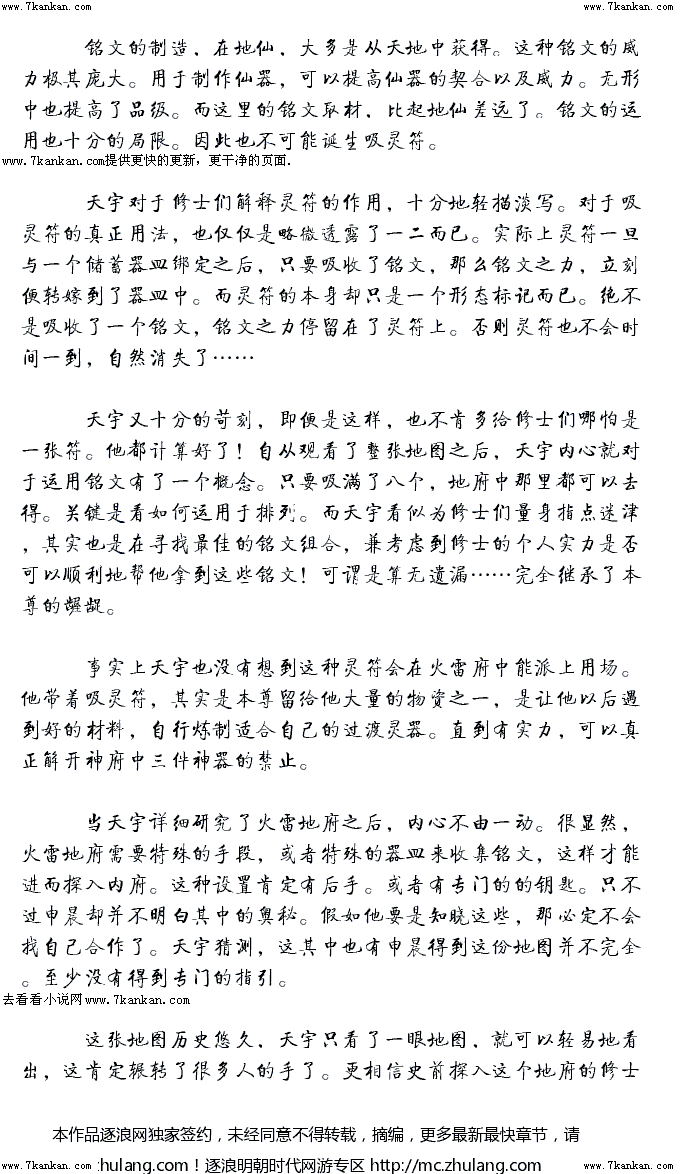 www.7kankan.com www.7kankan.com www.7kankan.com
铭文的制造，在地仙，大多是从天地中获得。这种铭文的威
力极其庞大。用于制作仙器，可以提高仙器的契合以及威力。无形
中也提高了品级。而这里的铭文取材，比起地仙差远了。铭文的运
用也十分的局限。因此也不可能诞生吸灵符。
www.7kankan.com提供更快的更新，更干净的页面.
天宇对于修士们解释灵符的作用，十分地轻描淡写。对于吸
灵符的真正用法，也仅仅是略微透露了一二而已。实际上灵符一旦
与一个储蓄器皿绑定之后，只要吸收了铭文，那么铭文之力，立刻
便转嫁到了器皿中。而灵符的本身却只是一个形态标记而已。绝不
是吸收了一个铭文，铭文之力停留在了灵符上。否则灵符也不会时
间一到，自然消失了……
天宇又十分的苛刻，即便是这样，也不肯多给修士们哪怕是
一张符。他都计算好了！自从观看了整张地图之后，天宇内心就对
于运用铭文有了一个概念。只要吸满了八个，地府中那里都可以去
得。关键是看如何运用于排列。而天宇看似为修士们量身指点迷津
，其实也是在寻找最佳的铭文组合，兼考虑到修士的个人实力是否
可以顺利地帮他拿到这些铭文！可谓是算无遗漏……完全继承了本
尊的龌龊。
事实上天宇也没有想到这种灵符会在火雷府中能派上用场。
他带着吸灵符，其实是本尊留给他大量的物资之一，是让他以后遇
到好的材料，自行炼制适合自己的过渡灵器。直到有实力，可以真
正解开神府中三件神器的禁止。
当天宇详细研究了火雷地府之后，内心不由一动。很显然，
火雷地府需要特殊的手段，或者特殊的器皿来收集铭文，这样才能
进而探入内府。这种设置肯定有后手。或者有专门的的钥匙。只不
过申晨却并不明白其中的奥秘。假如他要是知晓这些，那必定不会
找自己合作了。天宇猜测，这其中也有申晨得到这份地图并不完全
。至少没有得到专门的指引。
去看看小说网www.7kankan.com
这张地图历史悠久，天宇只看了一眼地图，就可以轻易地看
出，这肯定辗转了很多人的手了。更相信史前探入这个地府的修士
本作品逐浪网独家签约，未经同意不得转载，摘编，更多最新最快章节，请
www.7kankan.com :hulang.com！逐浪明朝时代网游专区http://mc.zhulang.com www.7kankan.com